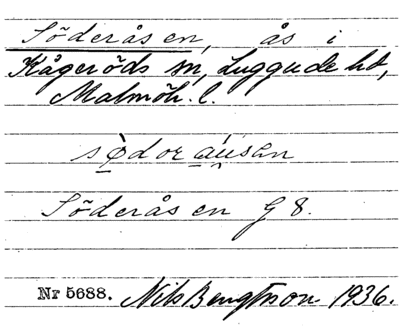 Söderåsen, ås i
Kågeröds sn, Luggude hd,
Malmöh. l.
sødor åusan
Söderåsen G 8.
Nr 5688. Nils Bengtson 1936.